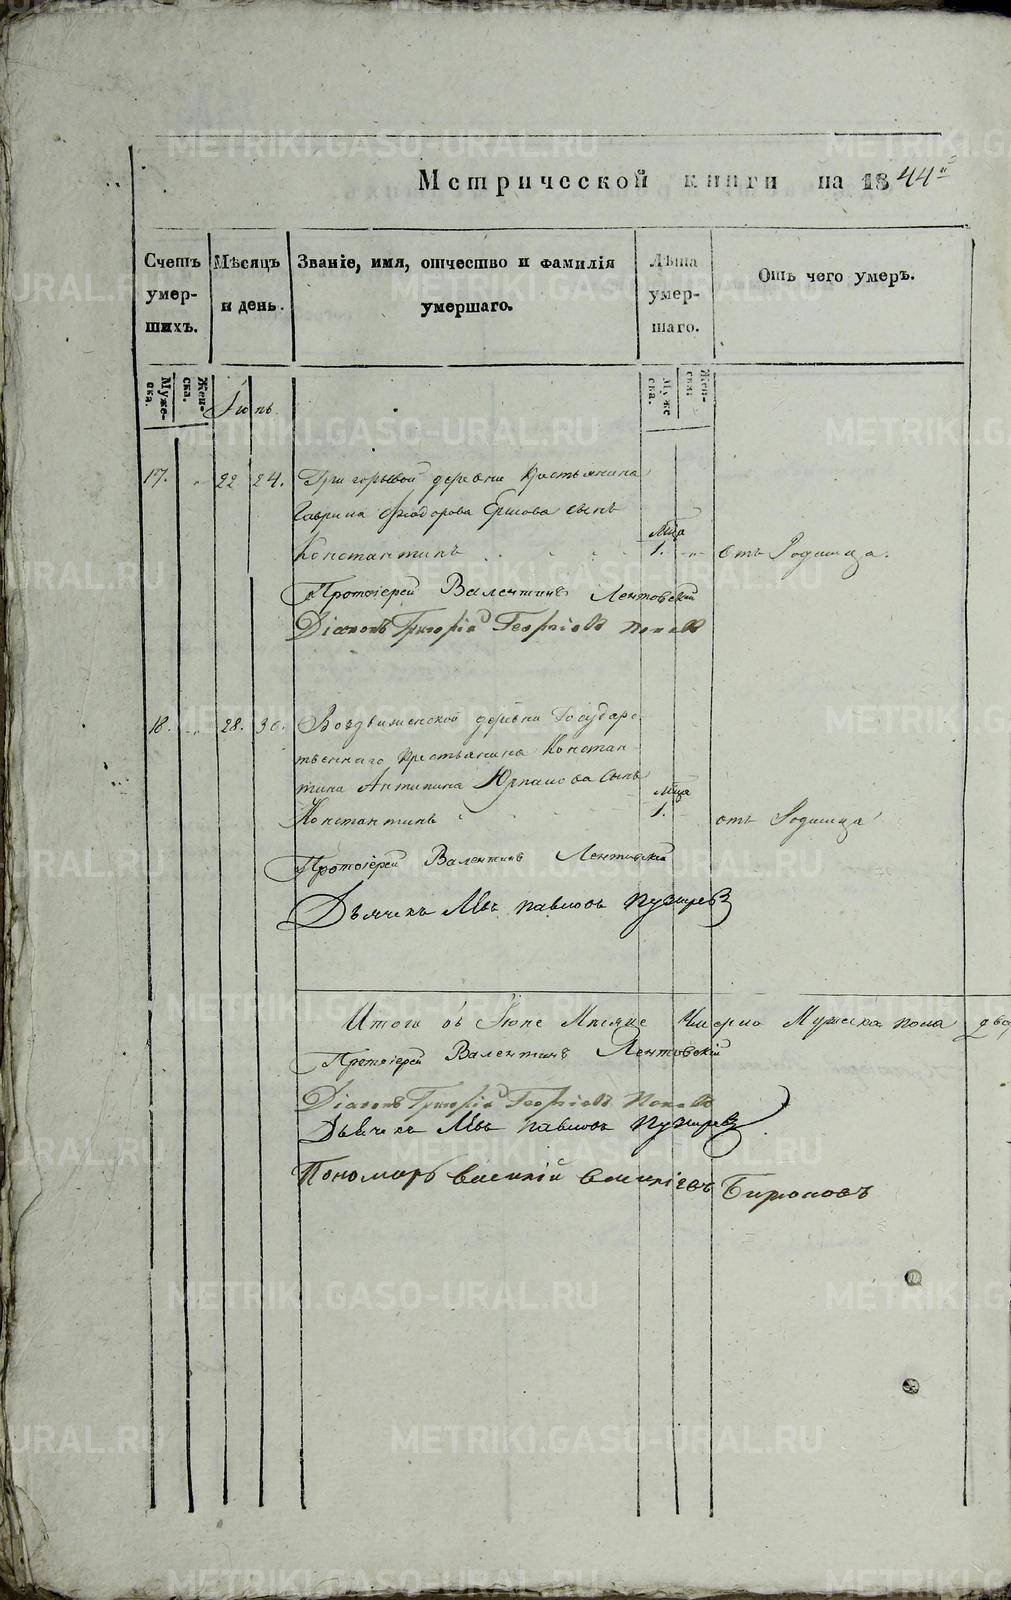 Метрической книги на 1844й
Счетъ умер-шихъ.
Мѣсяцъ и день.
Званіе, имя, отчество и фамилія умершаго.
Лѣта умер-шаго.
Отъ чего умеръ.
Муже-ска.
Жен-ска.
Муже ска.
Жен-ска.
Іюнь.
17. „ 22 24. Григорьевой деревни Крестьянина
Гаврила Федорова Ершова сынъ
Мца
Константинъ 1. „ отъ Родимца.
Протоіерей Валентинъ Лентовскій
Діаконъ Григорій Георгіевъ
18. „ 28. 30. Воздвиженской деревни Государс-
твеннаго крестьянина Констан-
тина Антипина сынъ
Мца
Константинъ 1. отъ Родимца
Протоіерей Валентинъ Лентовскій
Дьячекъ Левъ Павловъ Пузыревъ
Итого въ Іюне Месяце Умерло Мужеска пола два
Протоіерей Валентинъ Лентовскій
Діаконъ Григорій Георгіевъ
Дьячекъ Левъ Павловъ Пузыревъ
Пономарь Василій Василіевъ Бирюковъ
METRIKI.GASO-URAL.RU